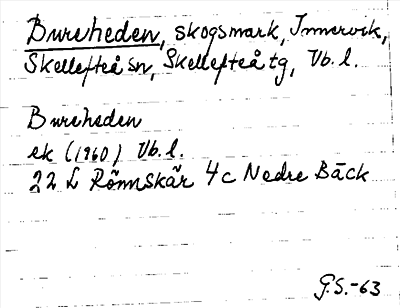 Bureheden, skogsmark, Innervik,
Skellefteå sn, Skellefteå tg, Vb. l.
Bureheden
ek (1960) Vb. l.
22 L Rönnskär 4c Nedre Bäck
G.S.-63